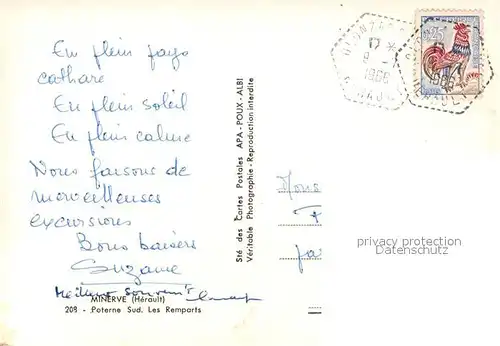 En plein pays
cathare
En plein soleil
En plein calme
Nous faisons de
merveilleuses
excursions
Bons baisers
Suzanne
Meilleur souvenir
MINERVE (Hérault)
208 - Poterne Sud. Les Remparts
Sté des Cartes Postales APA - POUX - ALBI
Véritable Photographie - Reproduction interdite
17 *
9 -
1966
HERAULT
0,25
Mons
privacy protection
Datenschutz